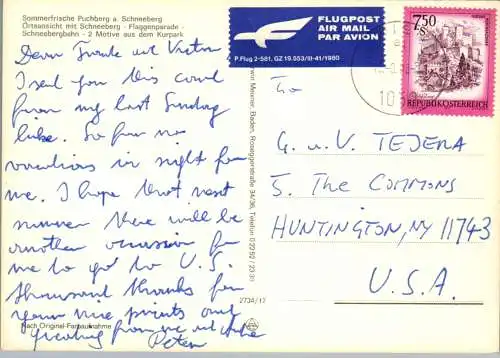 Sommerfrische Puchberg a. Schneeberg
Ortsansicht mit Schneeberg - Flaggenparade -
Schneebergbahn - 2 Motive aus dem Kurpark
Dear Traude and Victor
I send you this card
from my last Sunday
hike. So far no
vacations in sight for
me. I hope that next
summer there will be
another occasion for
me to go to U.S.
thousand thanks for
your nice prints and
greetings from me and
Peter
Nach Original-Farbaufnahme
2734/17
Mörbisch, Baden, Rosaliagasse 34/36, Telefon 0 22 52 /
FLUGPOST
AIR MAIL
PAR AVION
P.Flug 2-581, GZ 19.053/III-41/1980
7.50
S
REPUBLIK ÖSTERREICH
To
G. u. V. TEJERA
5. THE COMMONS
HUNTINGTON, NY 11743
U.S.A.